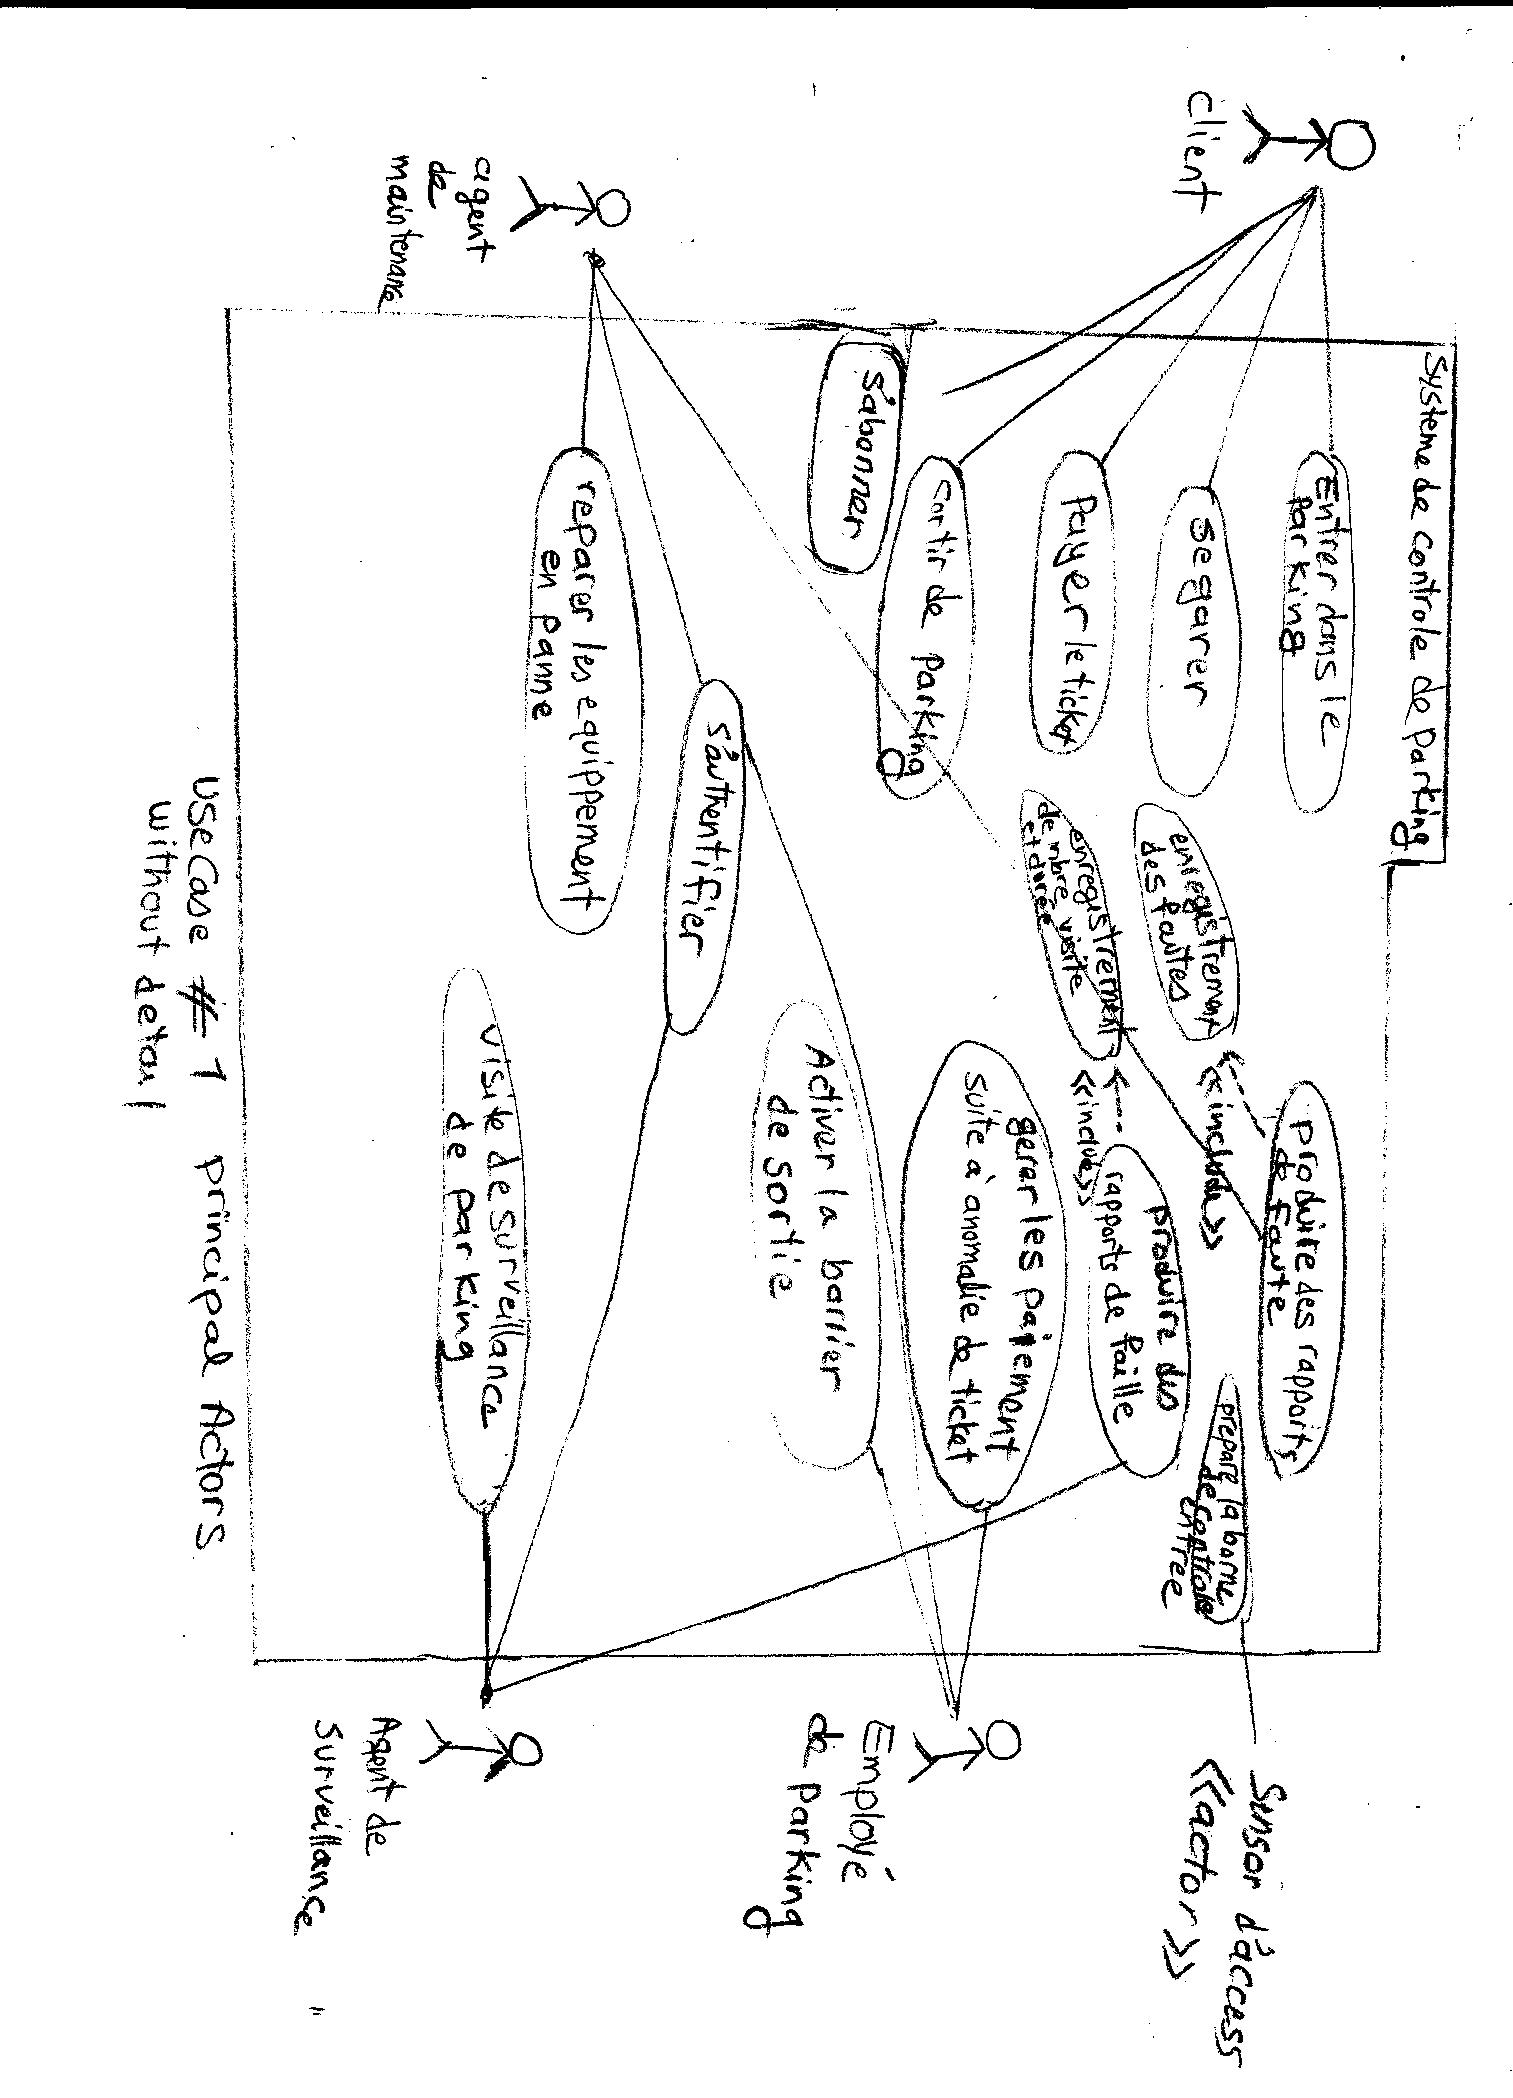 Systeme de controle de Parking
client
Entrer dans le
parking
se garer
Payer le ticket
sortir de parking
s'abonner
produire des rapports
de faute
enregistrement
des fautes
<<include>>
prepare la borne
de controle
entree
Sensor d'access
<<actor>>
produire des
rapports de faille
enregistrement
de nbre visite
et durée
<<include>>
gerer les paiement
suite à anomalie de ticket
Employé
de parking
Activer la barrier
de sortie
s'authentifier
reparer les equippement
en panne
agent
de
maintenance
visite de surveillance
de parking
Agent de
surveillance
usecase # 1 principal Actors
without detail